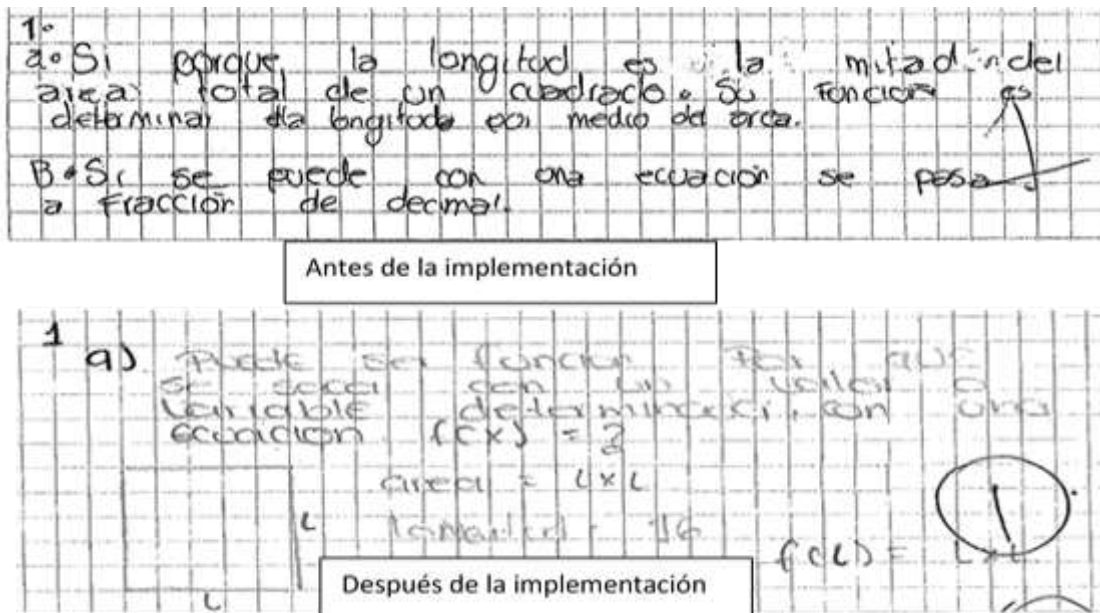 1.
a. Si porque la longitud es la mitad del
area total de un cuadrado. Su Función es
determinar la longitud por medio del area.
B. Si se puede con una ecuación se pasa
a Fracción de decimal.
Antes de la implementación
1
a) Puede ser función Por que
se saca con un valor o
variable determinada, con una
ecuación f(x) = ?
area = L x L
L
longitud = 16
f(L) = L x L
Después de la implementación
L